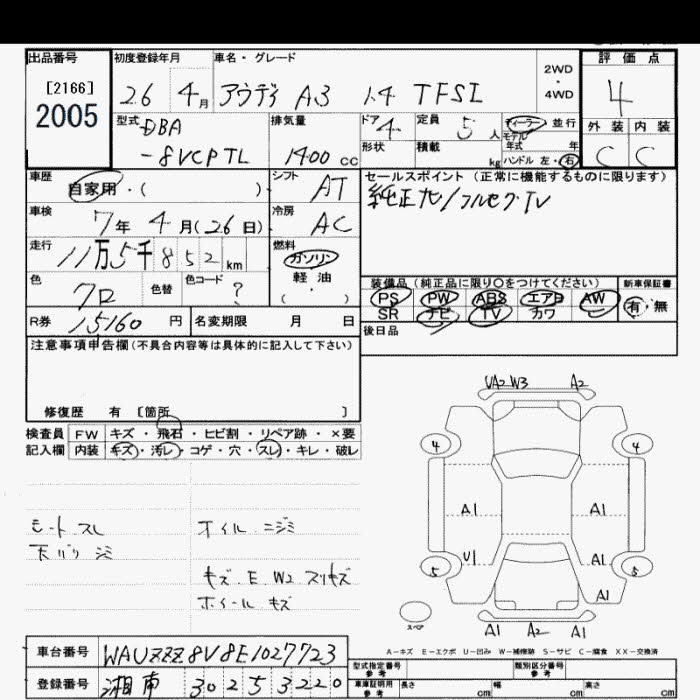 出品番号
[2166]
2005
初度登録年月
26 4月
車名・グレード
アウディ A3 1.4 TFSI
2WD
・
4WD
評価点
4
外装 内装
C C
型式
DBA
-8VCPTL
排気量
1400 cc
ドア 4
形状
定員 5 人
積載 kg
ディーラー・並行
モデル
年式 年
ハンドル 左・右
車歴
自家用・( )
シフト
AT
車検
7年 4月(26日)
冷房
AC
走行
11万5千852 km
燃料
ガソリン
軽・油
( )
色
クロ
色替
色コード
?
R券 15160 円
名変期限 月 日
セールスポイント (正常に機能するものに限ります)
純正ナビ/フルセグTV
装備品 (純正品に限り○をつけてください)
新車保証書
PS PW ABS エアB AW
SR ナビ TV カワ
有・無
後日品
注意事項申告欄(不具合内容等は具体的に記入して下さい)
修復歴 有 [箇所 ]
検査員
記入欄
FW キズ・飛石・ヒビ割・リペア跡・×要
内装 キズ・汚レ・コゲ・穴・スレ・キレ・破レ
シート スレ
天バリ シミ
オイル ニジミ
キズ E W2 スリキズ
ホイール キズ
UA2 W3 A2
4 4
A1 A1
U1 A1
5 5
A1
スペア
A1 A2 A1
A-キズ E-エクボ U-凹み W-補修跡 S-サビ C-腐食 XX-交換済
車台番号 WAUZZZ8V8E1027723
登録番号 湘南 302 5 3220
型式指定番号
参考
類別区分番号
参考
車庫証明用
参考
長さ cm 幅 cm 高さ cm